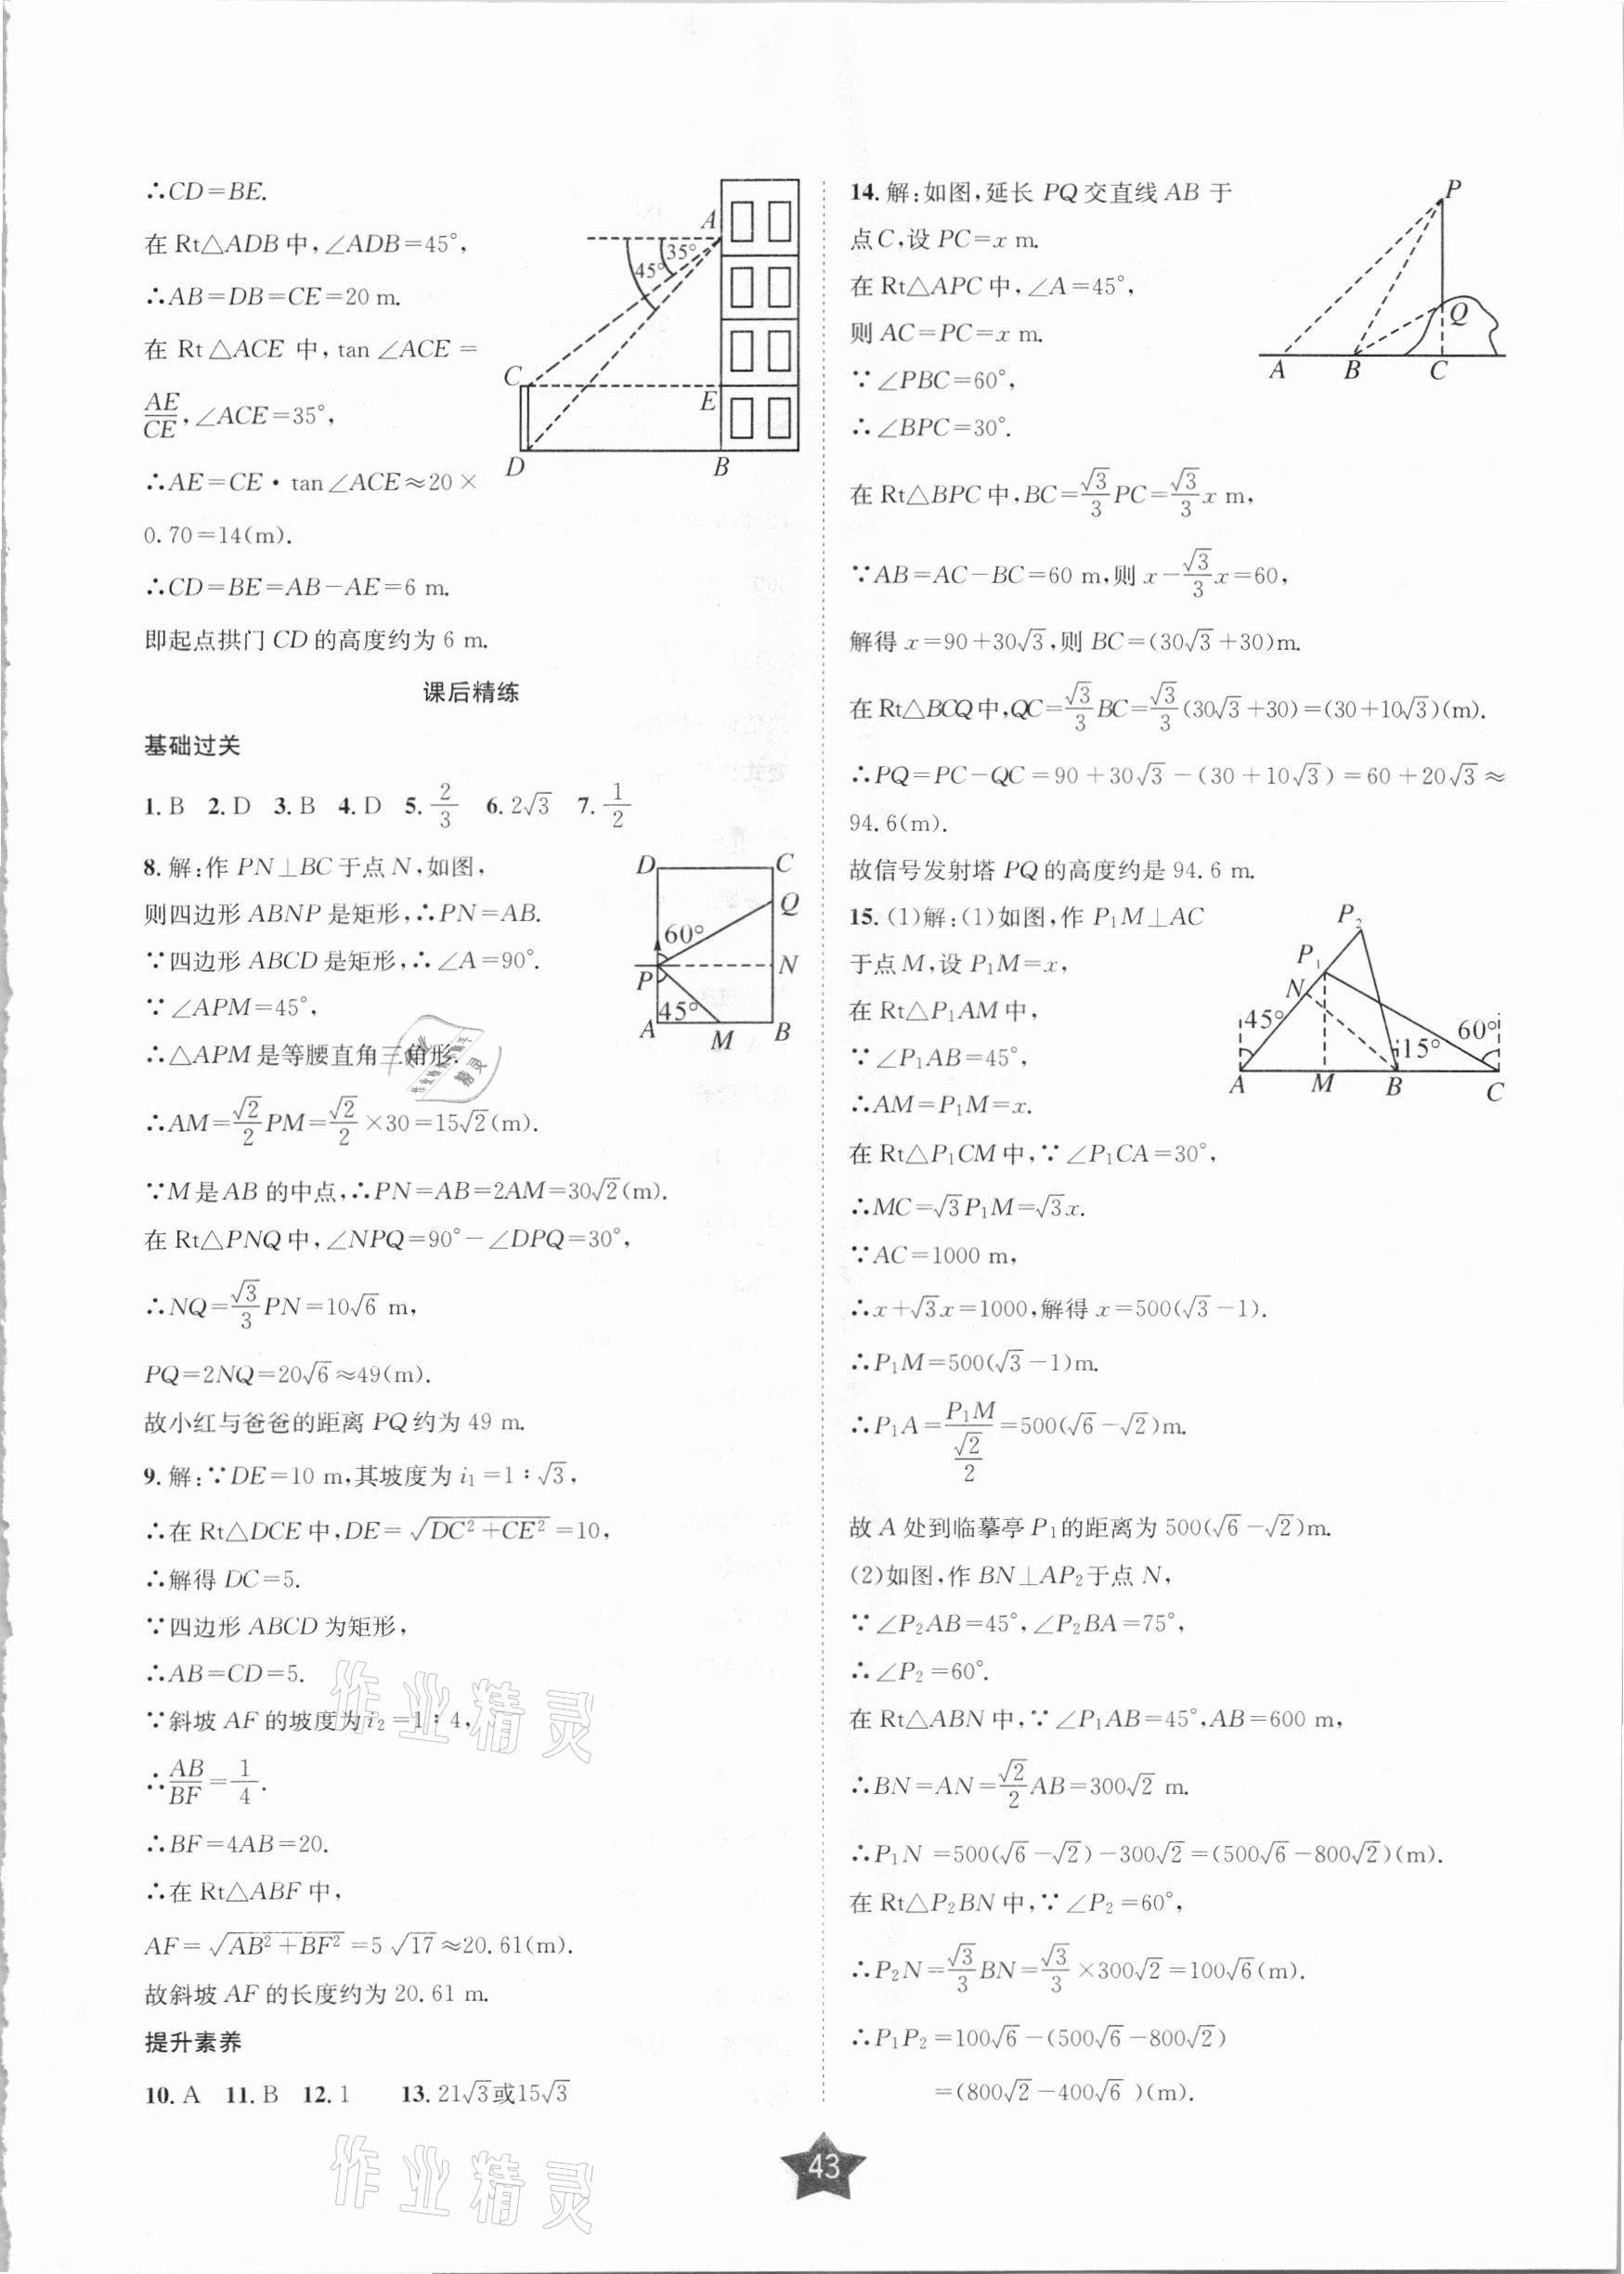 ∴CD=BE.
在 Rt△ADB 中,∠ADB=45°,
∴AB=DB=CE=20 m.
在 Rt△ACE 中,tan∠ACE=
AE/CE,∠ACE=35°,
∴AE=CE·tan∠ACE≈20×
0.70=14(m).
∴CD=BE=AB-AE=6 m.
即起点拱门 CD 的高度约为 6 m.
A
35°
45°
C
E
D
B
课后精练
基础过关
1. B 2. D 3. B 4. D 5. 2/3 6. 2√3 7. 1/2
8. 解:作 PN⊥BC 于点 N,如图,
则四边形 ABNP 是矩形,∴PN=AB.
∵四边形 ABCD 是矩形,∴∠A=90°.
∵∠APM=45°,
∴△APM 是等腰直角三角形.
∴AM=√2/2 PM=√2/2×30=15√2(m).
∵M 是 AB 的中点,∴PN=AB=2AM=30√2(m).
在 Rt△PNQ 中,∠NPQ=90°-∠DPQ=30°,
∴NQ=√3/3 PN=10√6 m,
PQ=2NQ=20√6≈49(m).
故小红与爸爸的距离 PQ 约为 49 m.
D
C
Q
60°
P
N
45°
A
M
B
9. 解:∵DE=10 m,其坡度为 i₁=1∶√3,
∴在 Rt△DCE 中,DE=√(DC²+CE²)=10,
∴解得 DC=5.
∵四边形 ABCD 为矩形,
∴AB=CD=5.
∵斜坡 AF 的坡度为 i₂=1∶4,
∴AB/BF=1/4.
∴BF=4AB=20.
∴在 Rt△ABF 中,
AF=√(AB²+BF²)=5√17≈20.61(m).
故斜坡 AF 的长度约为 20.61 m.
提升素养
10. A 11. B 12. 1 13. 21√3或15√3
14. 解:如图,延长 PQ 交直线 AB 于
点 C,设 PC=x m.
在 Rt△APC 中,∠A=45°,
则 AC=PC=x m.
∵∠PBC=60°,
∴∠BPC=30°.
在 Rt△BPC 中,BC=√3/3 PC=√3/3 x m,
∵AB=AC-BC=60 m,则 x-√3/3 x=60,
解得 x=90+30√3,则 BC=(30√3+30)m.
在 Rt△BCQ 中,QC=√3/3 BC=√3/3(30√3+30)=(30+10√3)(m).
∴PQ=PC-QC=90+30√3-(30+10√3)=60+20√3≈
94.6(m).
故信号发射塔 PQ 的高度约是 94.6 m.
P
Q
A
B
C
15. (1)解:(1)如图,作 P₁M⊥AC
于点 M,设 P₁M=x,
在 Rt△P₁AM 中,
∵∠P₁AB=45°,
∴AM=P₁M=x.
在 Rt△P₁CM 中,∵∠P₁CA=30°,
∴MC=√3P₁M=√3x.
∵AC=1000 m,
∴x+√3x=1000,解得 x=500(√3-1).
∴P₁M=500(√3-1)m.
∴P₁A=P₁M/(√2/2)=500(√6-√2)m.
故 A 处到临摹亭 P₁ 的距离为 500(√6-√2)m.
(2)如图,作 BN⊥AP₂ 于点 N,
∵∠P₂AB=45°,∠P₂BA=75°,
∴∠P₂=60°.
在 Rt△ABN 中,∵∠P₁AB=45°,AB=600 m,
∴BN=AN=√2/2 AB=300√2 m.
∴P₁N=500(√6-√2)-300√2=(500√6-800√2)(m).
在 Rt△P₂BN 中,∵∠P₂=60°,
∴P₂N=√3/3 BN=√3/3×300√2=100√6(m).
∴P₁P₂=100√6-(500√6-800√2)
=(800√2-400√6)(m).
P₂
P₁
N
45°
60°
15°
A
M
B
C
作业精灵
作业精灵
43